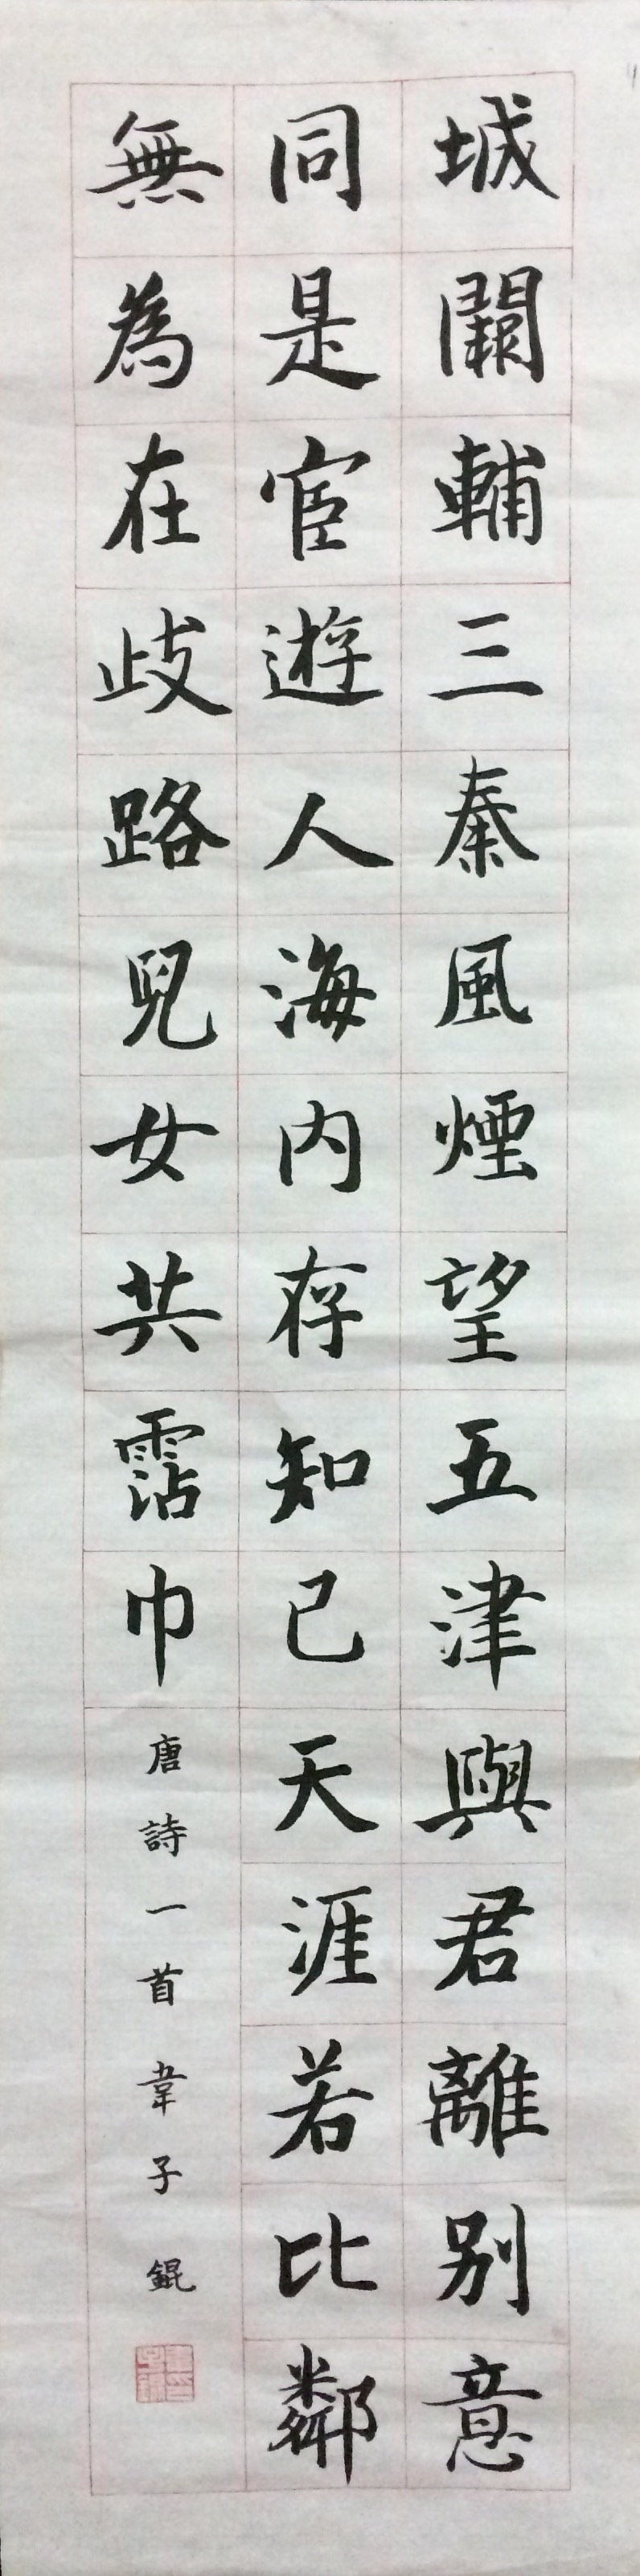 城闕輔三秦風煙望五津與君離別意
同是宦遊人海內存知己天涯若比鄰
無為在歧路兒女共霑巾
唐詩一首韋子錕